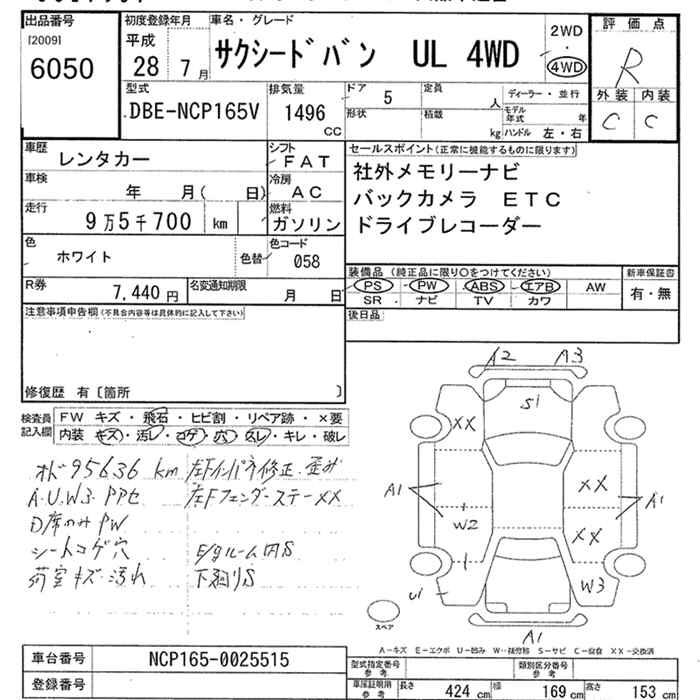 出品番号
[2009]
6050
初度登録年月
平成
28 7 月
車名・グレード
サクシードバン UL 4WD
2WD
・
4WD
評価点
R
外装 内装
C C
型式
DBE-NCP165V
排気量
1496
CC
ドア 5
定員
人
形状
積載
kg
ディーラー・並行
モデル年式 年
ハンドル 左・右
車歴
レンタカー
シフト
FAT
車検
年 月( 日)
冷房
AC
走行
9万5千700 km
燃料
ガソリン
色
ホワイト
色替
色コード
058
R券
7,440 円
名変通知期限
月 日
セールスポイント(正常に機能するものに限ります)
社外メモリーナビ
バックカメラ ETC
ドライブレコーダー
装備品(純正品に限り○をつけてください)
PS PW ABS エアB AW
SR ナビ TV カワ
新車保証書
有・無
後日品
注意事項申告欄(不具合内容等は具体的に記入して下さい)
修復歴 有〔箇所 〕
検査員記入欄
FW キズ・飛石・ヒビ割・リペア跡・×要
内装 キズ・汚レ・コゲ・穴・スレ・キレ・破レ
オド95636 km
A.U.W3.PPセ
D席のみPW
シートコゲ穴
荷室キズ・汚れ
左Fインパネ修正、歪み
左Fフェンダーステー××
E/gルーム内S
下廻りS
A2 A3
S1
××
A1
W2
××
××
A1
U1
W3
A1
スペア
A-キズ E-エクボ U-凹み W-補修跡 S-サビ C-腐食 ××-交換済
車台番号
NCP165-0025515
登録番号
型式指定番号
参考
類別区分番号
参考
車庫証明用
参考
長さ 424 cm
幅 169 cm
高さ 153 cm